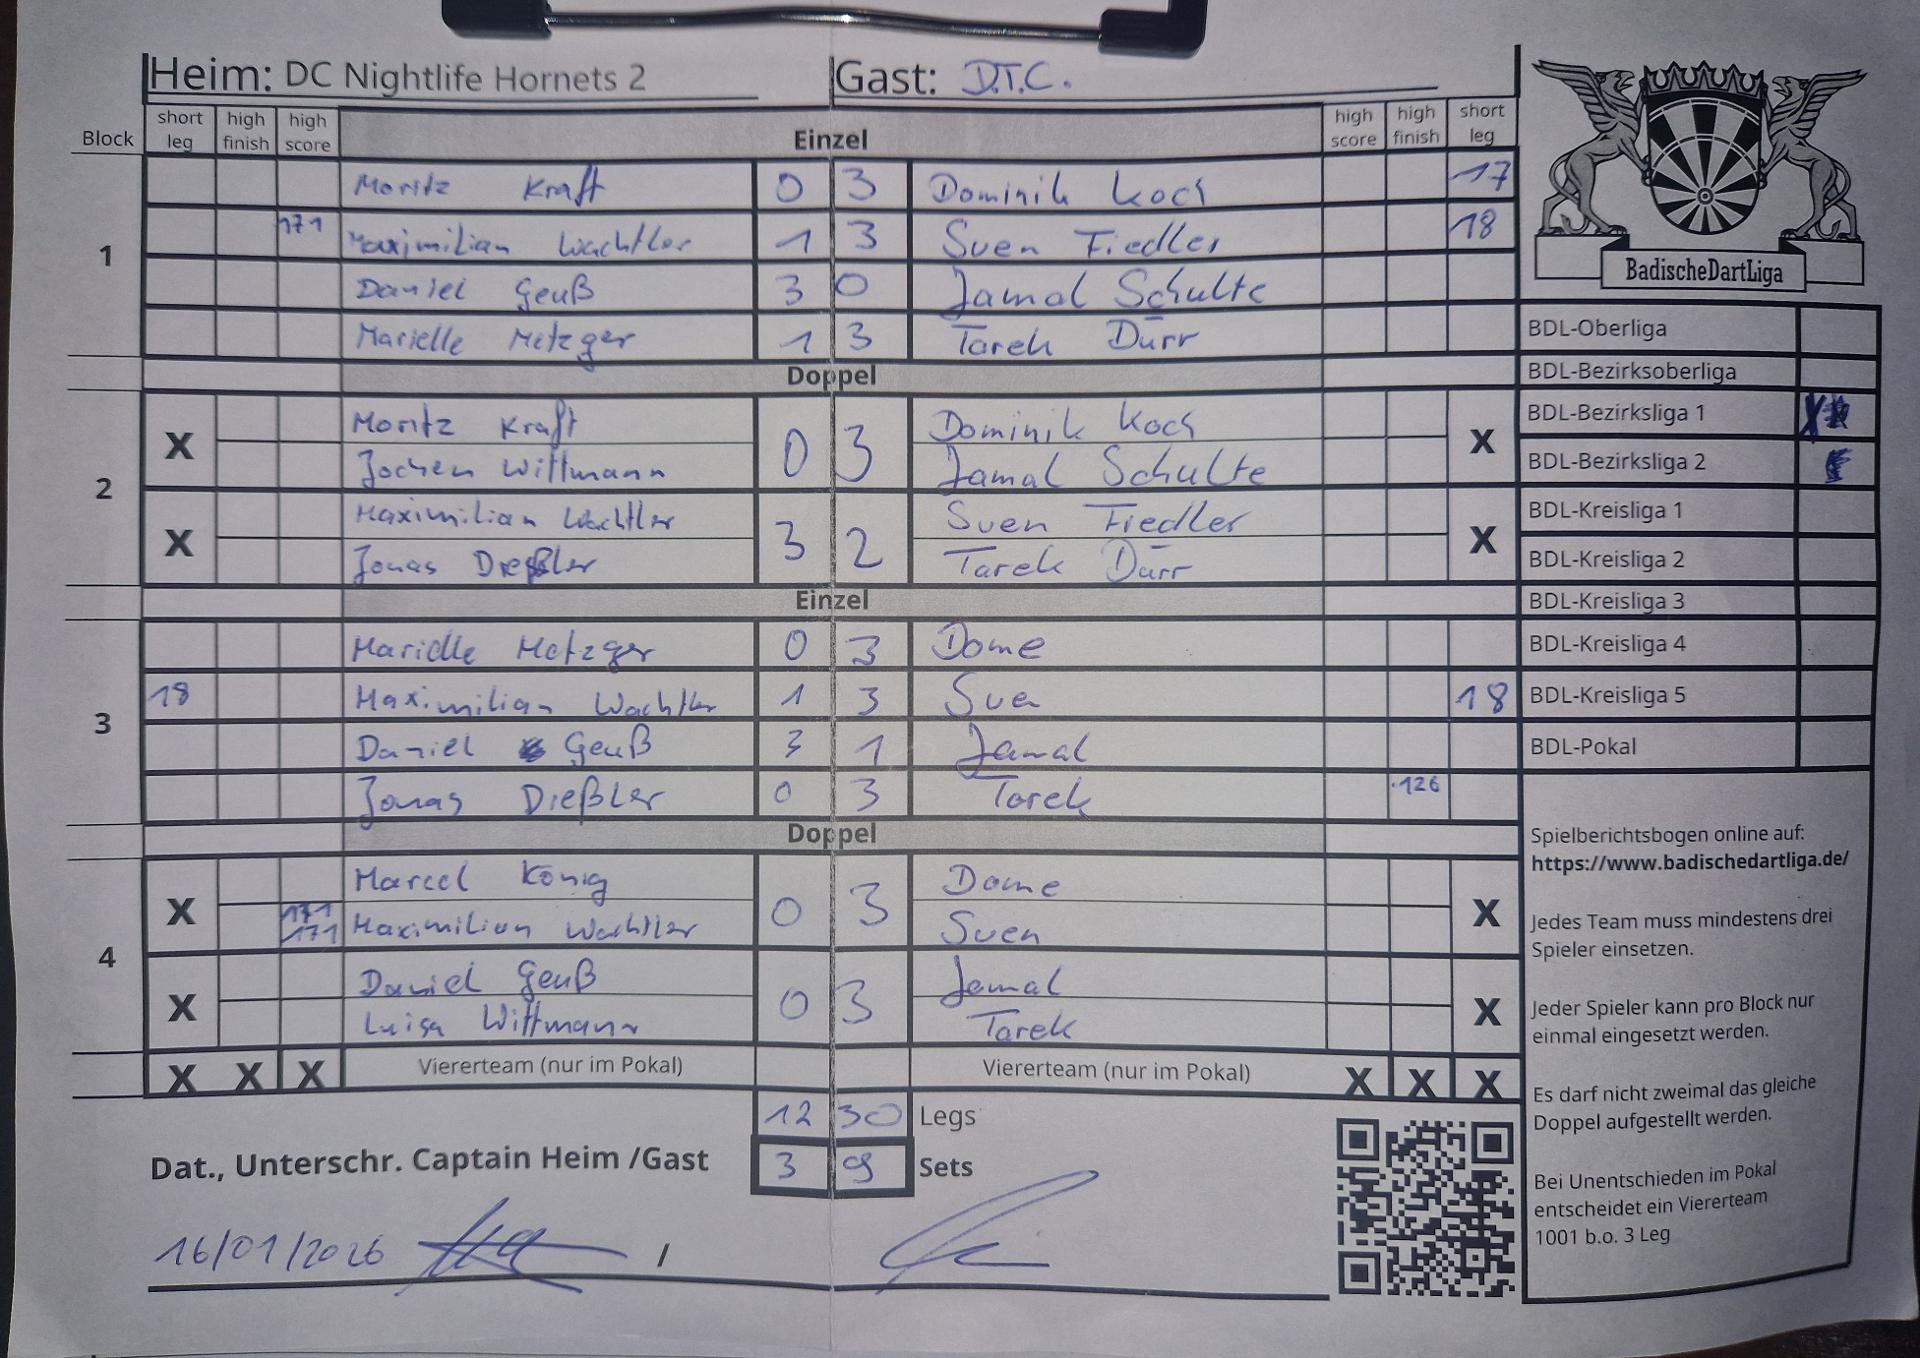 Heim: DC Nightlife Hornets 2 Gast: D.T.C.
Block short leg high finish high score Einzel high score high finish short leg
1
Moritz Kraft 0 3 Dominik Koch 17
171 Maximilian Wachtler 1 3 Sven Fiedler 18
Daniel Geuß 3 0 Jamal Schulte
Marielle Metzger 1 3 Tarek Dürr
Doppel
2
X Moritz Kraft 0 3 Dominik Koch X
Jochen Wittmann Jamal Schulte
X Maximilian Wachtler 3 2 Sven Fiedler X
Jonas Dießler Tarek Dürr
Einzel
3
Marielle Metzger 0 3 Dome
18 Maximilian Wachtler 1 3 Sven 18
Daniel Geuß 3 1 Jamal
Jonas Dießler 0 3 Tarek 126
Doppel
4
X Marcel König 0 3 Dome X
171 171 Maximilian Wachtler Sven
X Daniel Geuß 0 3 Jamal X
Luisa Wittmann Tarek
X X X Viererteam (nur im Pokal) Viererteam (nur im Pokal) X X X
12 30 Legs
Dat., Unterschr. Captain Heim /Gast 3 9 Sets
16/01/2026 /
BadischeDartLiga
BDL-Oberliga
BDL-Bezirksoberliga
BDL-Bezirksliga 1 X
BDL-Bezirksliga 2
BDL-Kreisliga 1
BDL-Kreisliga 2
BDL-Kreisliga 3
BDL-Kreisliga 4
BDL-Kreisliga 5
BDL-Pokal
Spielberichtsbogen online auf:
https://www.badischedartliga.de/
Jedes Team muss mindestens drei
Spieler einsetzen.
Jeder Spieler kann pro Block nur
einmal eingesetzt werden.
Es darf nicht zweimal das gleiche
Doppel aufgestellt werden.
Bei Unentschieden im Pokal
entscheidet ein Viererteam
1001 b.o. 3 Leg